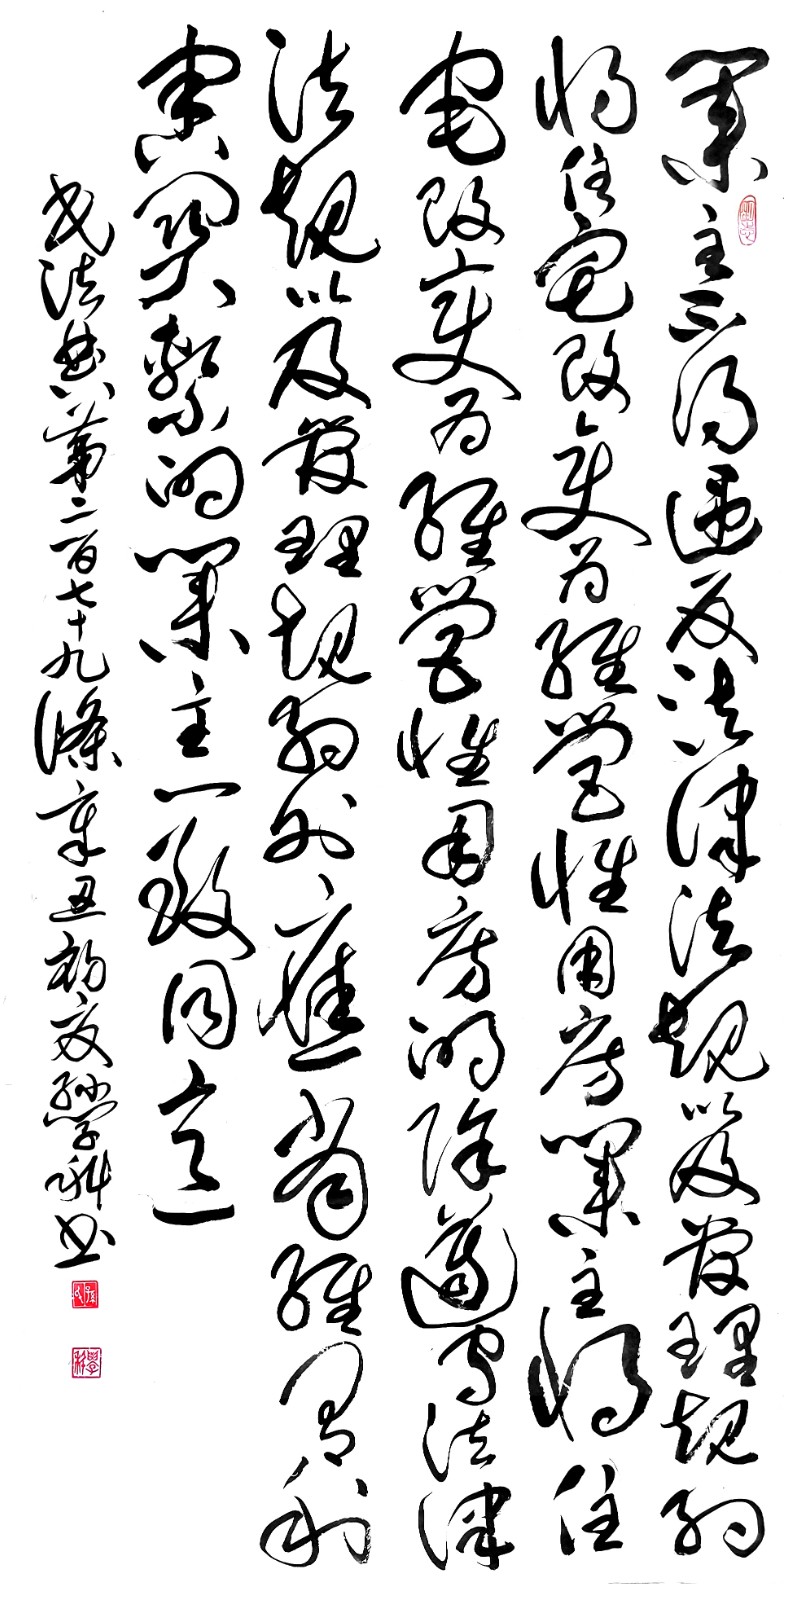 業主不得違反法律法規以及管理規約
將住宅改變為經營性用房業主將住
宅改變為經營性用房的除遵守法律
法規以及管理規約外應當經有利
害關係的業主一致同意
民法典第二百七十九條辛丑初夏孫學科書